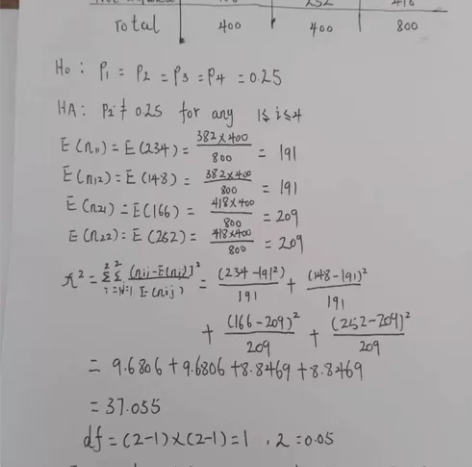 252
Total 400 400 800
H₀ : P₁ = P₂ = P₃ = P₄ = 0.25
HA : P₂ ≠ 0.25 for any 1≤i≤4
E(n₁₁) = E(234) = 382×400/800 = 191
E(n₁₂) = E(148) = 382×400/800 = 191
E(n₂₁) = E(166) = 418×400/800 = 209
E(n₂₂) = E(252) = 418×400/800 = 209
x² = Σ²ᵢ₌₁ Σ²ⱼ₌₁ (nij-E(nij))²/E(nij) = (234-191²)/191 + (148-191)²/191
+ (166-209)²/209 + (252-209)²/209
= 9.6806 + 9.6806 + 8.8469 + 8.8469
= 37.055
df = (2-1)×(2-1) = 1 , 2 = 0.05